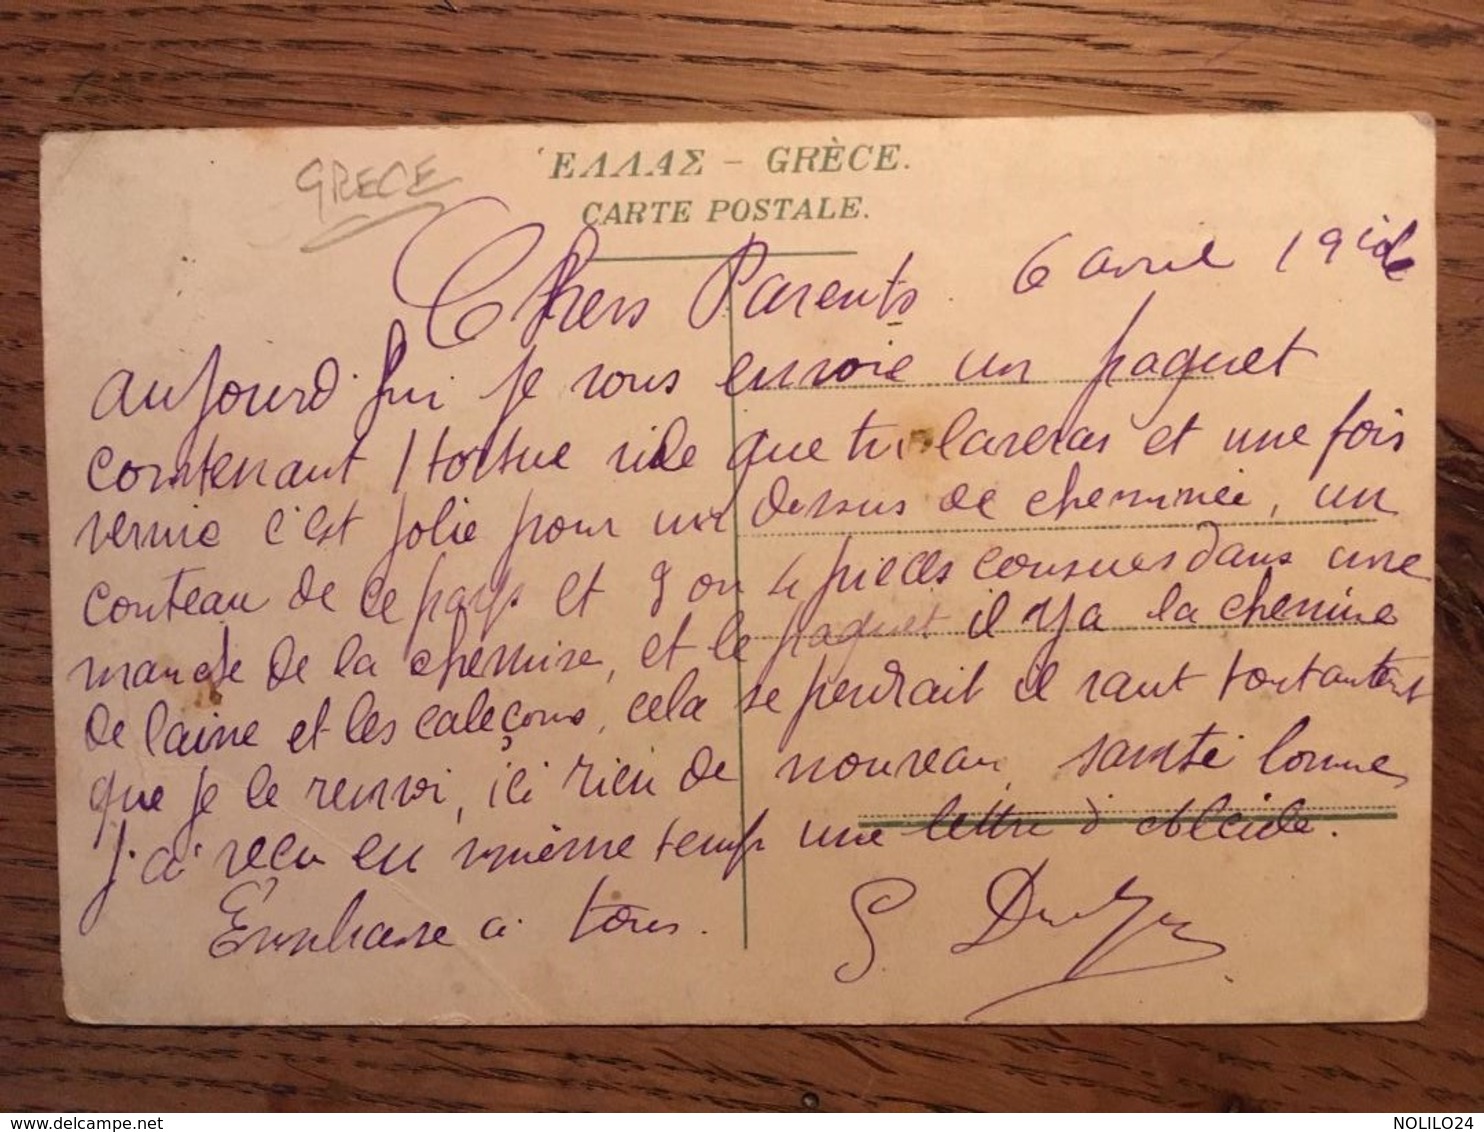 GRECE
ἙΛΛΑΣ – GRÈCE.
CARTE POSTALE.
Chers Parents. 6 avril 19
aujourd'hui je vous envoie un paquet
contenant 1 tortue vide que tu laveras et une fois
vernie c'est jolie pour un dessus de cheminée, un
couteau de ce pays et 3 ou 4 pièces cousues dans une
manche de la chemise, et le paquet il y a la chemise
de laine et les caleçons, cela se perdrait il vaut
que je le renvoi, ici rien de nouveau, santé bonne,
j'ai reçu en même temps une lettre d'Alcide.
Embrasse à tous.
NOLILO24